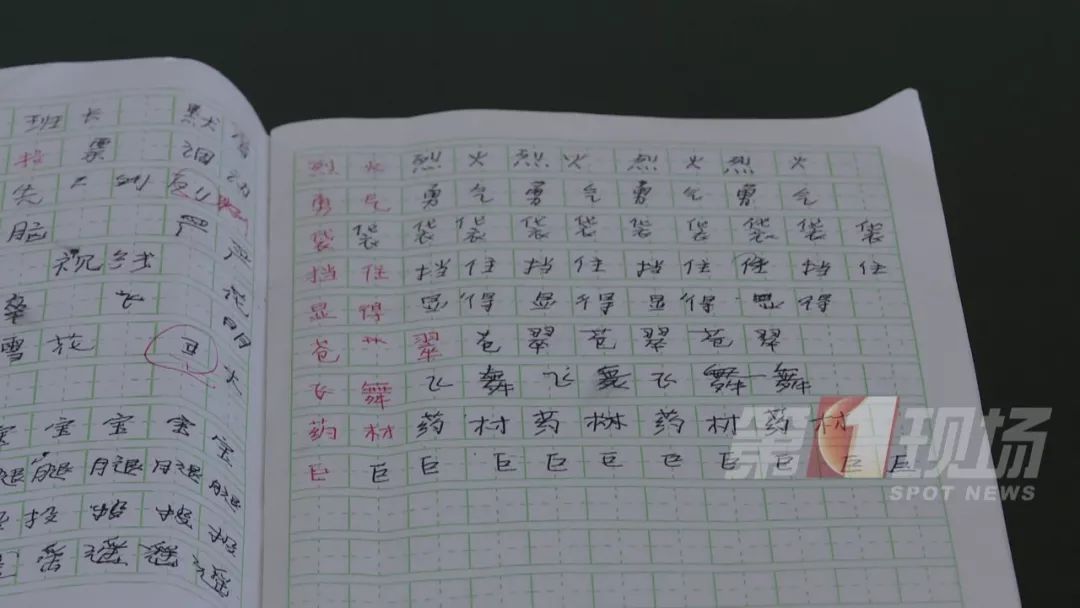 班长 默
投票 泪
先 到
脑 严 严
视线 花
飞 明
雪花 火
宝 宝 宝 宝 宝
腿 腿 腿 腿
投 投 投 投
遥 遥 遥 遥
烈火 烈火 烈火 烈火 烈火
勇气 勇气 勇气 勇气 勇气
袋 袋 袋 袋 袋 袋 袋 袋 袋 袋
挡住 挡住 挡住 挡住 住 挡住
显得 显得 显得 显得 显得
苍艹翠 苍翠 苍翠 苍翠
飞舞 飞舞 飞舞 飞舞 舞
药材 药材 药材 药材 药材
巨 巨 巨 巨 巨 巨 巨 巨 巨 巨 巨
第1现场
SPOT NEWS